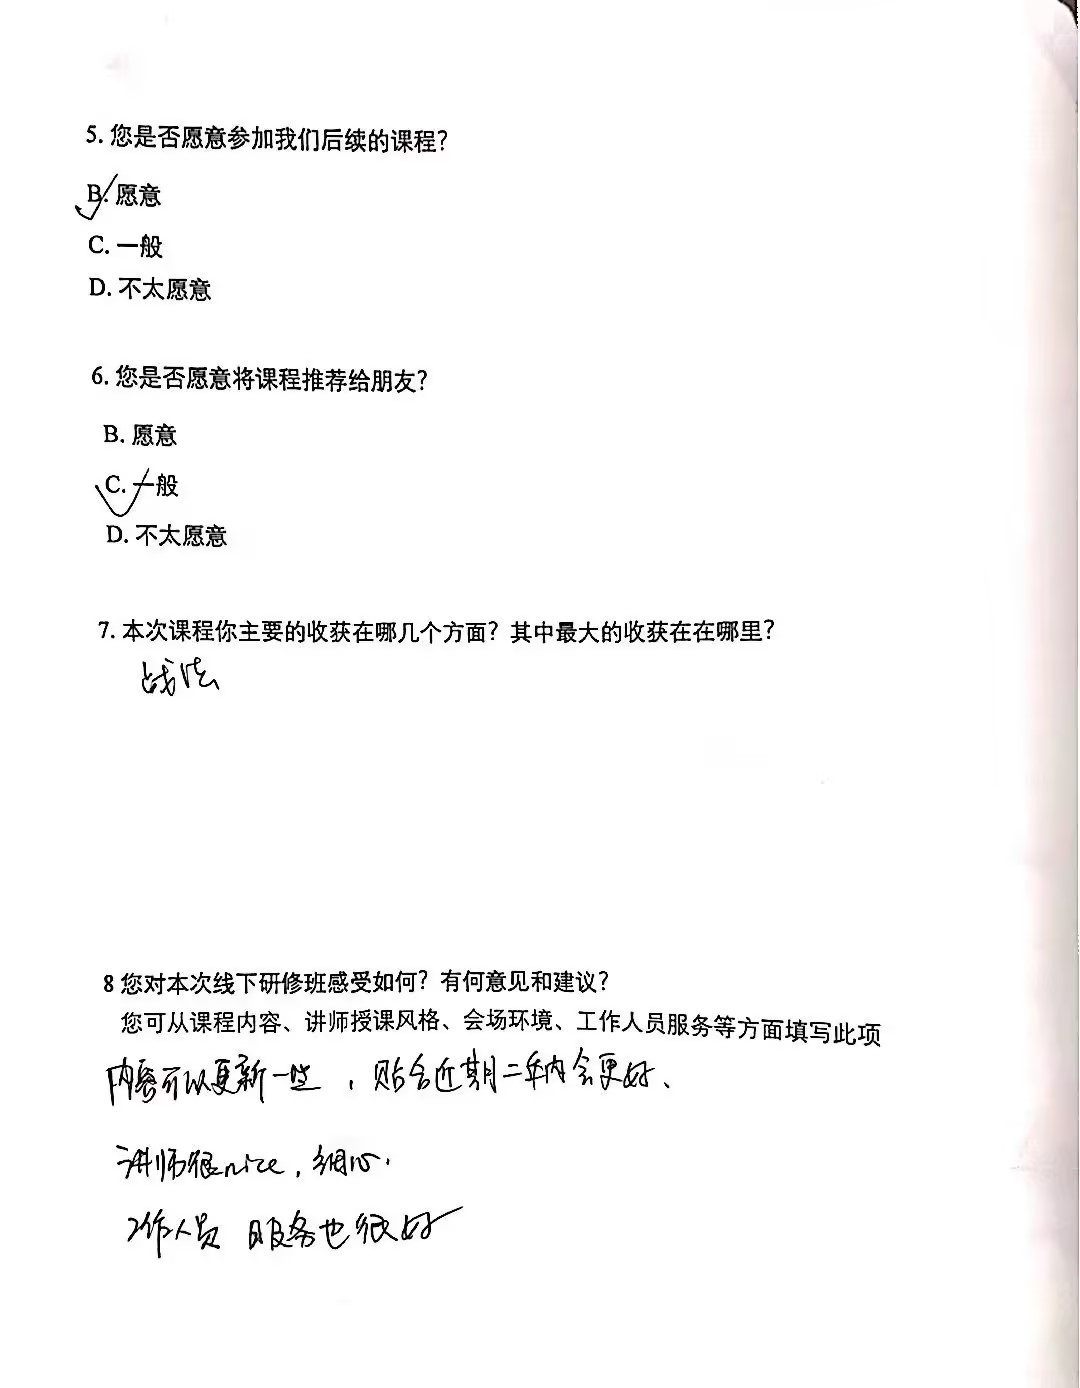 5. 您是否愿意参加我们后续的课程?
B. 愿意
C. 一般
D. 不太愿意
6. 您是否愿意将课程推荐给朋友?
B. 愿意
C. 一般
D. 不太愿意
7. 本次课程你主要的收获在哪几个方面? 其中最大的收获在在哪里?
战法
8 您对本次线下研修班感受如何? 有何意见和建议?
您可从课程内容、讲师授课风格、会场环境、工作人员服务等方面填写此项
内容可以更新一些，贴合近期二年内会更好、
讲师很nice，细心.
工作人员 服务也很好